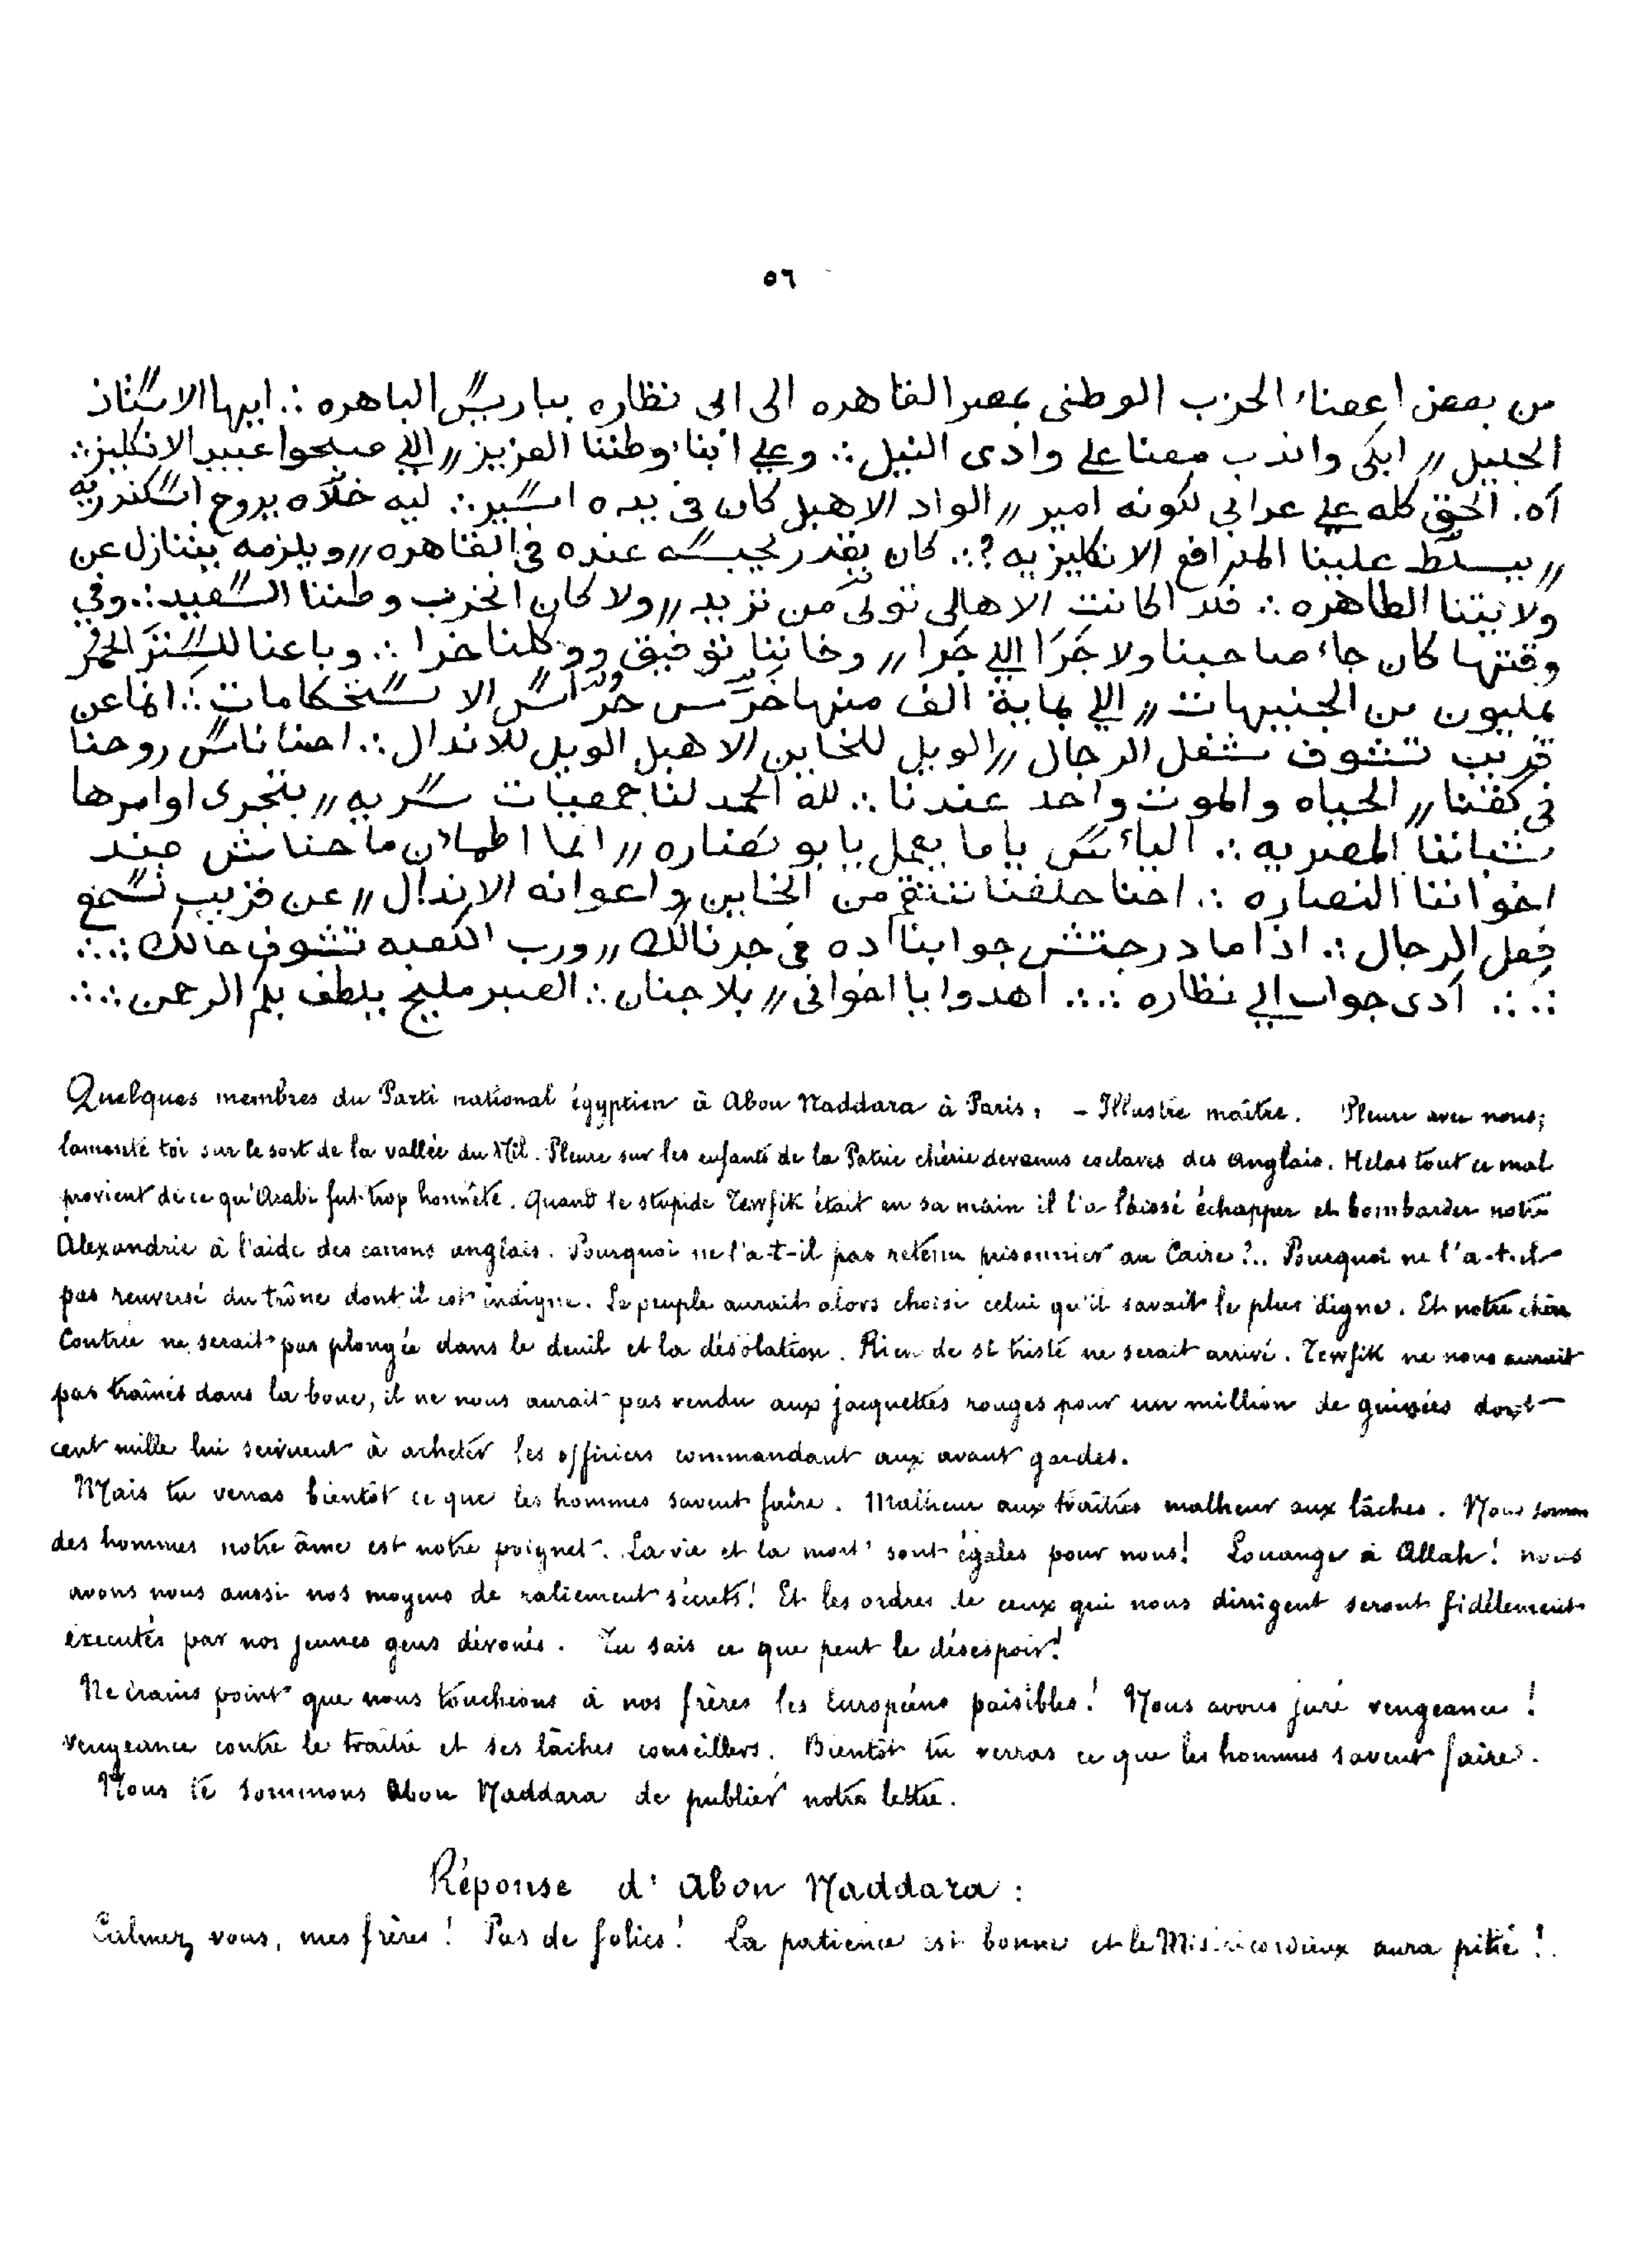 ٥٦
من بعض اعضاء الحزب الوطنى بمصر القاهره الى ابى نظاره بباريس الباهره ∴ ايها الاستاذ
الجليل // ابكى واندب معنا على وادى النيل ∴ وعلى ابناء وطننا العزيز // اللي صبحوا عبيد الانكليز ∴
آه. الحق كله على عرابي لكونه امير // الواد الاهبل كان فى يده اسير ∴ ليه خلّاه يروح اسكندريه
// يسلّط علينا المدافع الانكليزيه ؟ ∴ كان يقدر يحبسه عنده فى القاهره // ويلزمه يتنازل عن
ولايتنا الطاهره ∴ فلذا كانت الاهالى تولّى من تريد // ولا كان انخرب وطننا السعيد ∴ وفي
وقتها كان جاء صاحبنا ولا جَرَا اللي جَرا // وخاننا توفيق ووكلنا خرا ∴ وباعنا للسنتر الحمر
بمليون من الجنيهات // اللي بماية الف منها خرّس حُرّاس الاستحكامات ∴ انما عن
قريب تشوف شغل الرجال // الويل للخاين الاهبل الويل للاندال ∴ احنا ناس روحنا
فى كفنا // الحياه والموت واحد عندنا ∴ لله الحمد لنا جمعيات سريه // بتجرى اوامرها
شباننا المصريه ∴ اليأس ياما يعمل يا بو نضاره // انما اطمان ماحناش ضد
اخواننا النصاره ∴ احنا حلفنا ننتقم من الخاين واعوانه الاندال // عن قريب تسمع
فعل الرجال ∴ اذا ما درجتش جوابنا ده فى جرنالك // ورب الكعبه تشوف حالك ∴∴
∴∴ آدى جواب ابي نظاره ∴∴ اهدوا يا اخوانى // بلا جنان ∴ الصبر مليح يلطف بكم الرحمن ∴∴
Quelques membres du Parti national égyptien à Abou Naddara à Paris, – Illustre maître. Pleure avec nous;
lamente toi sur le sort de la vallée du Nil. Pleure sur les enfants de la Patrie chérie devenus esclaves des Anglais. Helas tout ce mal
provient de ce qu'Arabi fut trop honnête. Quand le stupide Tewfik était en sa main il l'a laissé échapper et bombarder notre
Alexandrie à l'aide des canons anglais. Pourquoi ne l'a-t-il pas retenu prisonnier au Caire ?.. Pourquoi ne l'a-t-il
pas renversé du trône dont il est indigne. Le peuple aurait alors choisi celui qu'il savait le plus digne. Et notre chère
Contrée ne serait pas plongée dans le deuil et la désolation. Rien de si triste ne serait arrivé. Tewfik ne nous aurait
pas trainés dans la boue, il ne nous aurait pas vendu aux jacquettes rouges pour un million de guinées dont
cent mille lui servirent à acheter les officiers commandant aux avant gardes.
Mais tu verras bientôt ce que les hommes savent faire. Malheur aux traîtres malheur aux lâches. Nous sommes
des hommes notre âme est notre poignet. La vie et la mort sont égales pour nous! Louange à Allah! nous
avons nous aussi nos moyens de raliement sécrets! Et les ordres de ceux qui nous dirrigent seront fidèlement
éxecutés par nos jeunes gens dévoués. Tu sais ce que peut le désespoir!
Ne crains point que nous touchions à nos frères les Européens paisibles! Nous avons juré vengeance!
vengeance contre le traître et ses lâches conseillers. Bientôt tu verras ce que les hommes savent faire.
Nous te sommons Abou Naddara de publier notre lettre.
Réponse d'Abou Naddara :
Calmez vous, mes frères! Pas de folies! La patience est bonne et le Miséricordieux aura pitié!